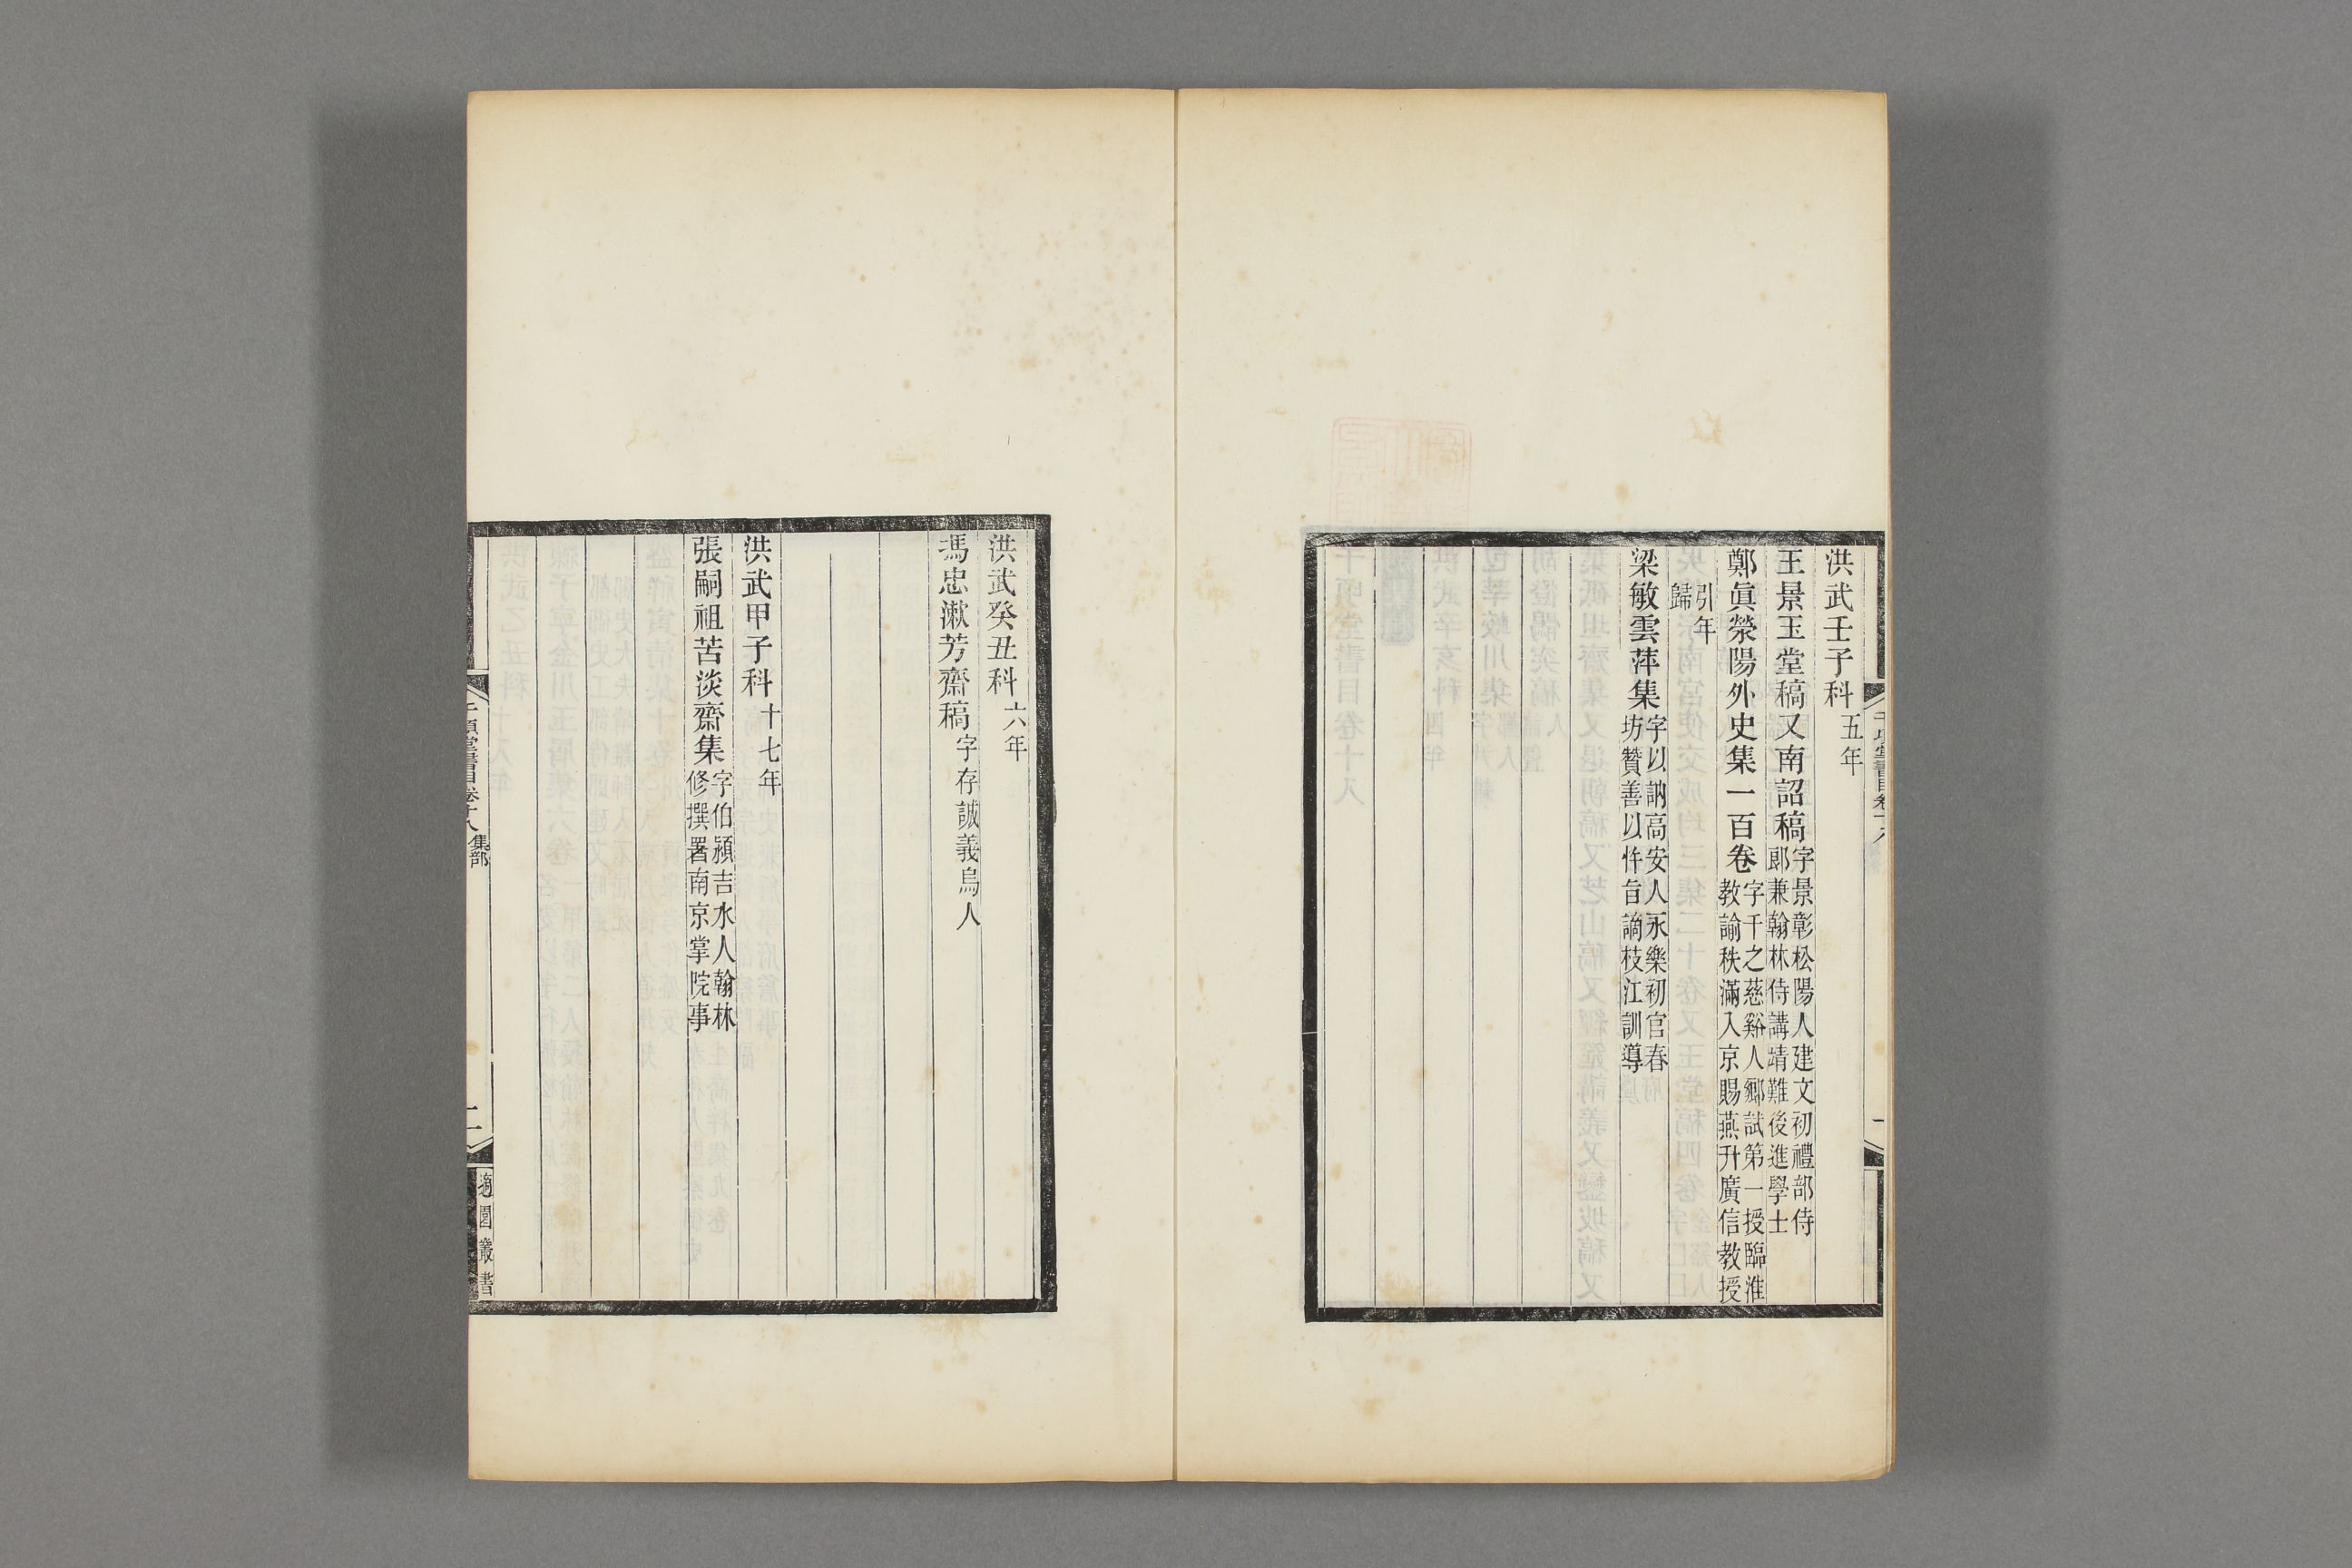 洪武壬子科五年
王景玉堂稿又南詔稿字景彰松陽人建文初禮部侍
郎兼翰林侍講靖難後進學士
鄭眞滎陽外史集一百卷字千之慈谿人鄉試第一授臨淮
教諭秩滿入京賜燕升廣信教授
引年
歸
梁敏雲萍集字以訥高安人永樂初官春
坊贊善以忤旨謫枝江訓導
洪武癸丑科六年
馮忠漱芳齋稿字存誠義烏人
洪武甲子科十七年
張嗣祖苦淡齋集字伯潁吉水人翰林
修撰署南京掌院事
千頃堂書目卷十八集部
二
適園叢書